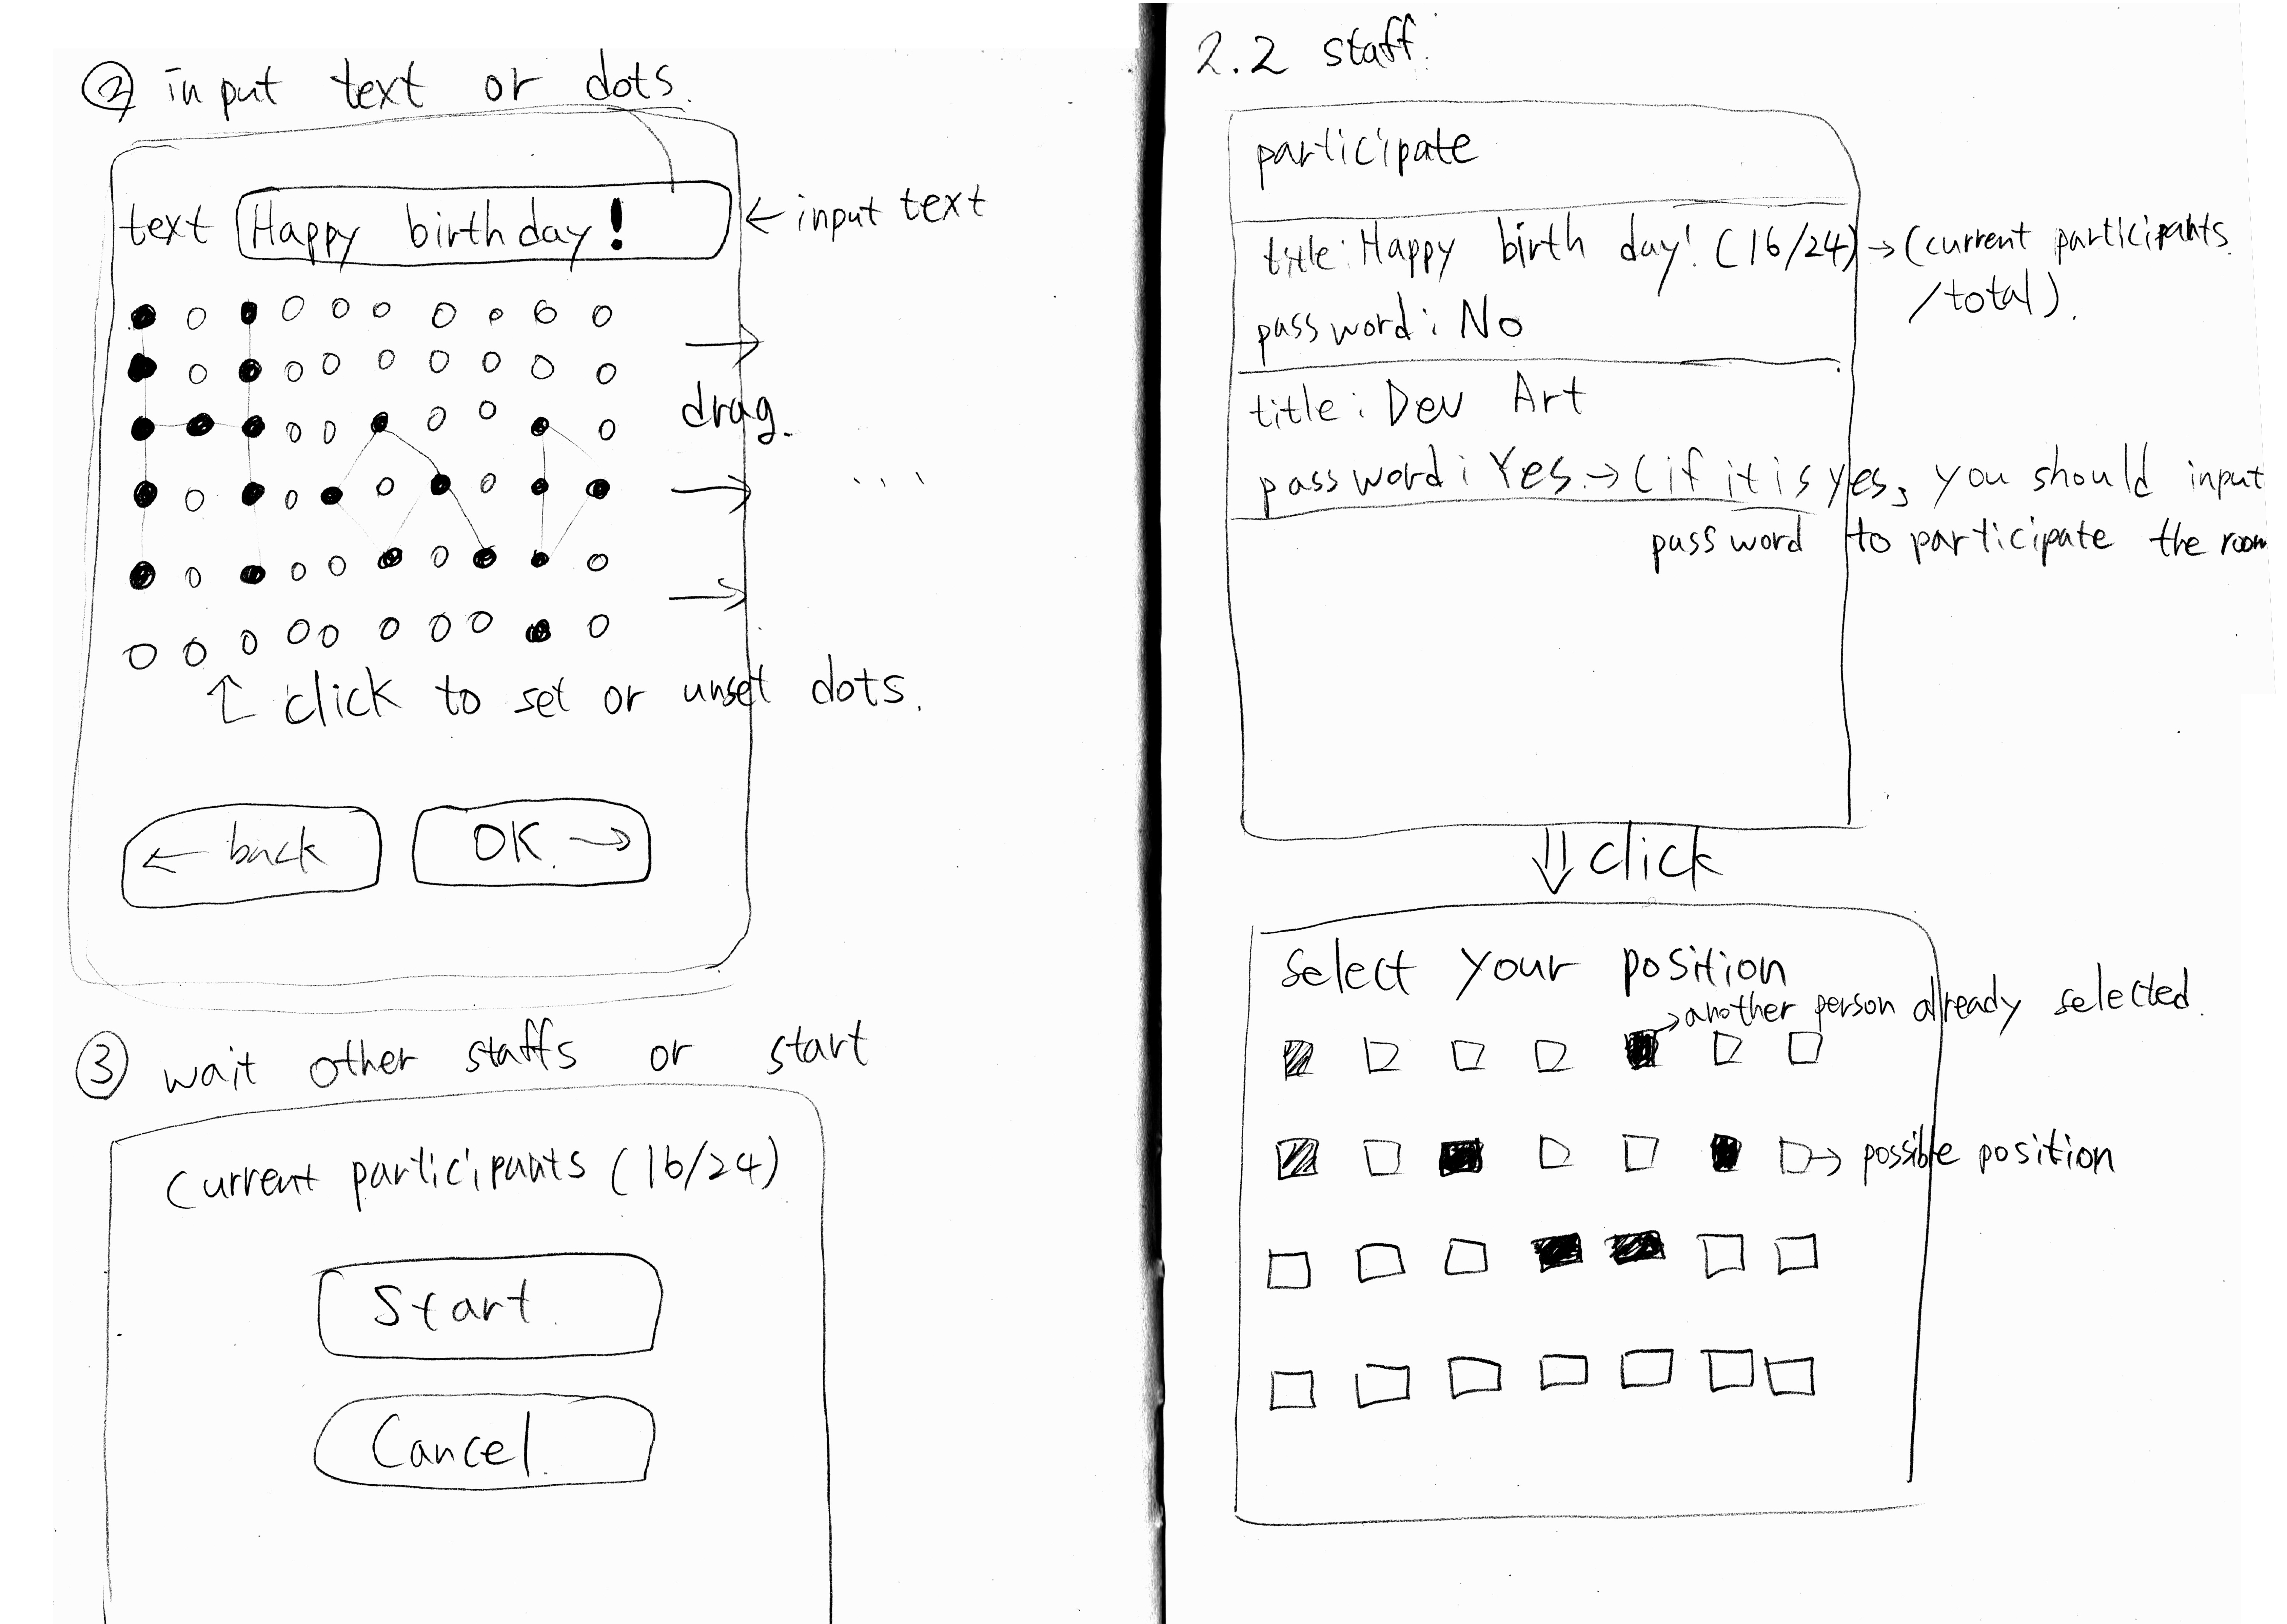 ② input text or dots.
text Happy birthday! ← input text
→
drag.
→ ...
→
↑ click to set or unset dots.
← back OK →
③ wait other staffs or start
Current participants (16/24)
Start
Cancel.
2.2 staff.
participate
title: Happy birth day! (16/24) → (current participants
/total).
password: No
title: Dev Art
password: Yes. → (if it is yes, you should input
password to participate the room
⇓ click
select your position
→ another person already selected.
→ possible position